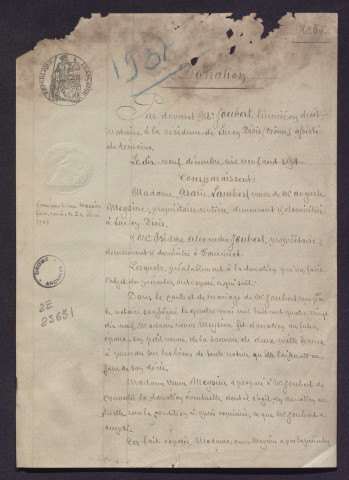 N° 50
1907
Donation
RÉPUBLIQUE FRANÇAISE
Par devant Me Joubert, licencié en droit,
notaire à la résidence de Luc en Diois (Drôme) assisté
de témoins,
Le dix neuf décembre mil neuf cent sept
Comparaissent:
Madame Lambert veuve de Mr Auguste
Meyssire, propriétaire rentière, demeurant & domiciliée
à Luc en Diois.
& Mr Isidore Alexandre Joubert, propriétaire,
demeurant & domicilié à
Lesquels, préalablement à la donation qui va faire
l'objet des présentes ont exposé ce qui suit:
DRÔME
ARCHIVES
2E
25651
Dans le contrat de mariage de Mr Joubert reçu par
le notaire soussigné le quatre mai mil huit cent quatre vingt
dix neuf, Madame veuve Meyssire fit donation au futur
époux, son petit neveu de la somme de deux mille francs
à prendre sur les biens de toute nature qu'elle laisserait au
jour de son décès.
Madame veuve Meyssire a proposé à Mr Joubert de
convertir la donation éventuelle dont il s'agit en donation ac
tuelle sous les conditions ci après exprimées, ce que Mr Joubert a
accepté.
Ces faits exposés, Madame veuve Meyssire a par les présentes